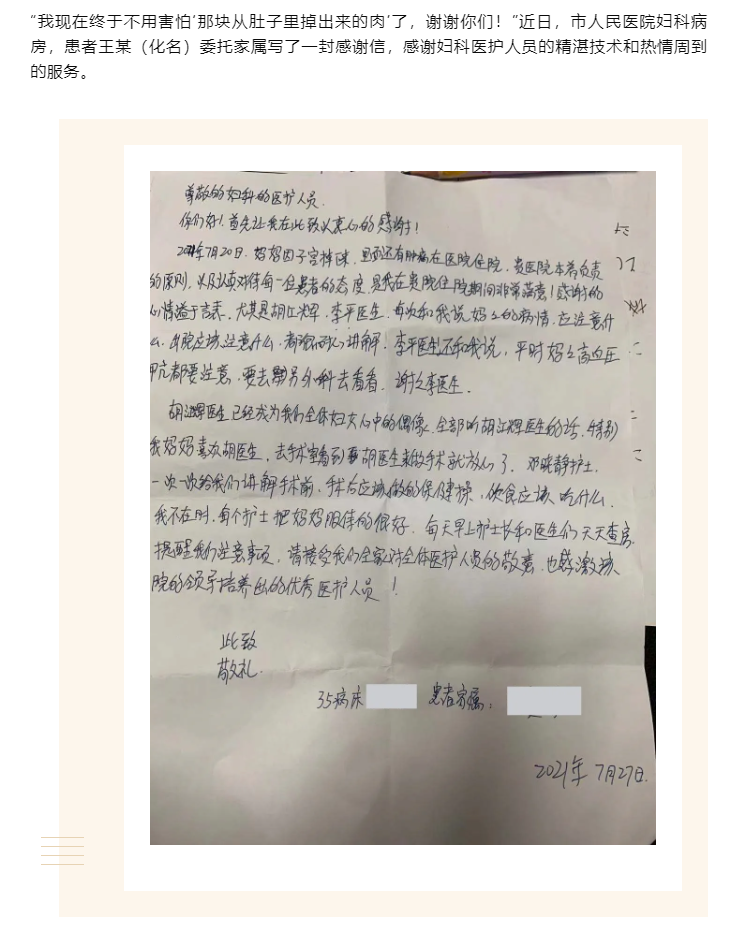 “我现在终于不用害怕‘那块从肚子里掉出来的肉’了，谢谢你们！”近日，市人民医院妇科病
房，患者王某（化名）委托家属写了一封感谢信，感谢妇科医护人员的精湛技术和热情周到
的服务。
尊敬的妇科的医护人员.
你们好！首先让我在此致以衷心的感谢！
2021年7月20日. 妈妈因子宫掉球. 里面还有肿瘤在医院住院. 贵医院本着负责
的原则. 以及认真对待每一位患者的态度. 是我在贵院住院期间非常满意！感谢的
心情溢于言表. 尤其是胡江辉. 李平医生. 每次和我说妈妈的病情. 应注意什
么. 出院应该注意什么. 都耐心讲解. 李平医生还和我说, 平时妈妈高血压
甲亢都要注意. 要去另外科去看看. 谢谢李医生.
胡江辉医生已经成为我们全体妇女心中的偶像. 全部听胡江辉医生的话. 特别
我妈妈喜欢胡医生, 去手术室看到胡医生来做手术就放心了. 邓晓静护士.
一次一次给我们讲解手术前. 手术后应该做的保健操. 饮食应该吃什么.
我不在时. 每个护士把妈妈服侍的很好. 每天早上护士长和医生们天天查房.
提醒我们注意事项. 请接受我们全家对全体医护人员的敬意. 也感激该
院的领导培养出的优秀医护人员！
此致
敬礼.
35病床 患者家属：
2021年 7月27日.